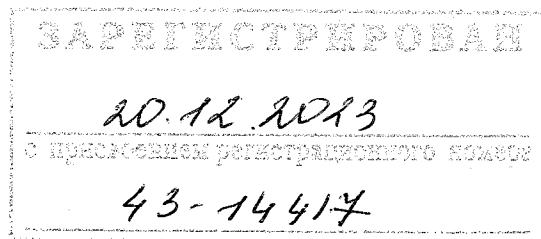 ЗАРЕГИСТРИРОВАН
20.12.2023
с присвоением регистрационного номера
43-14417